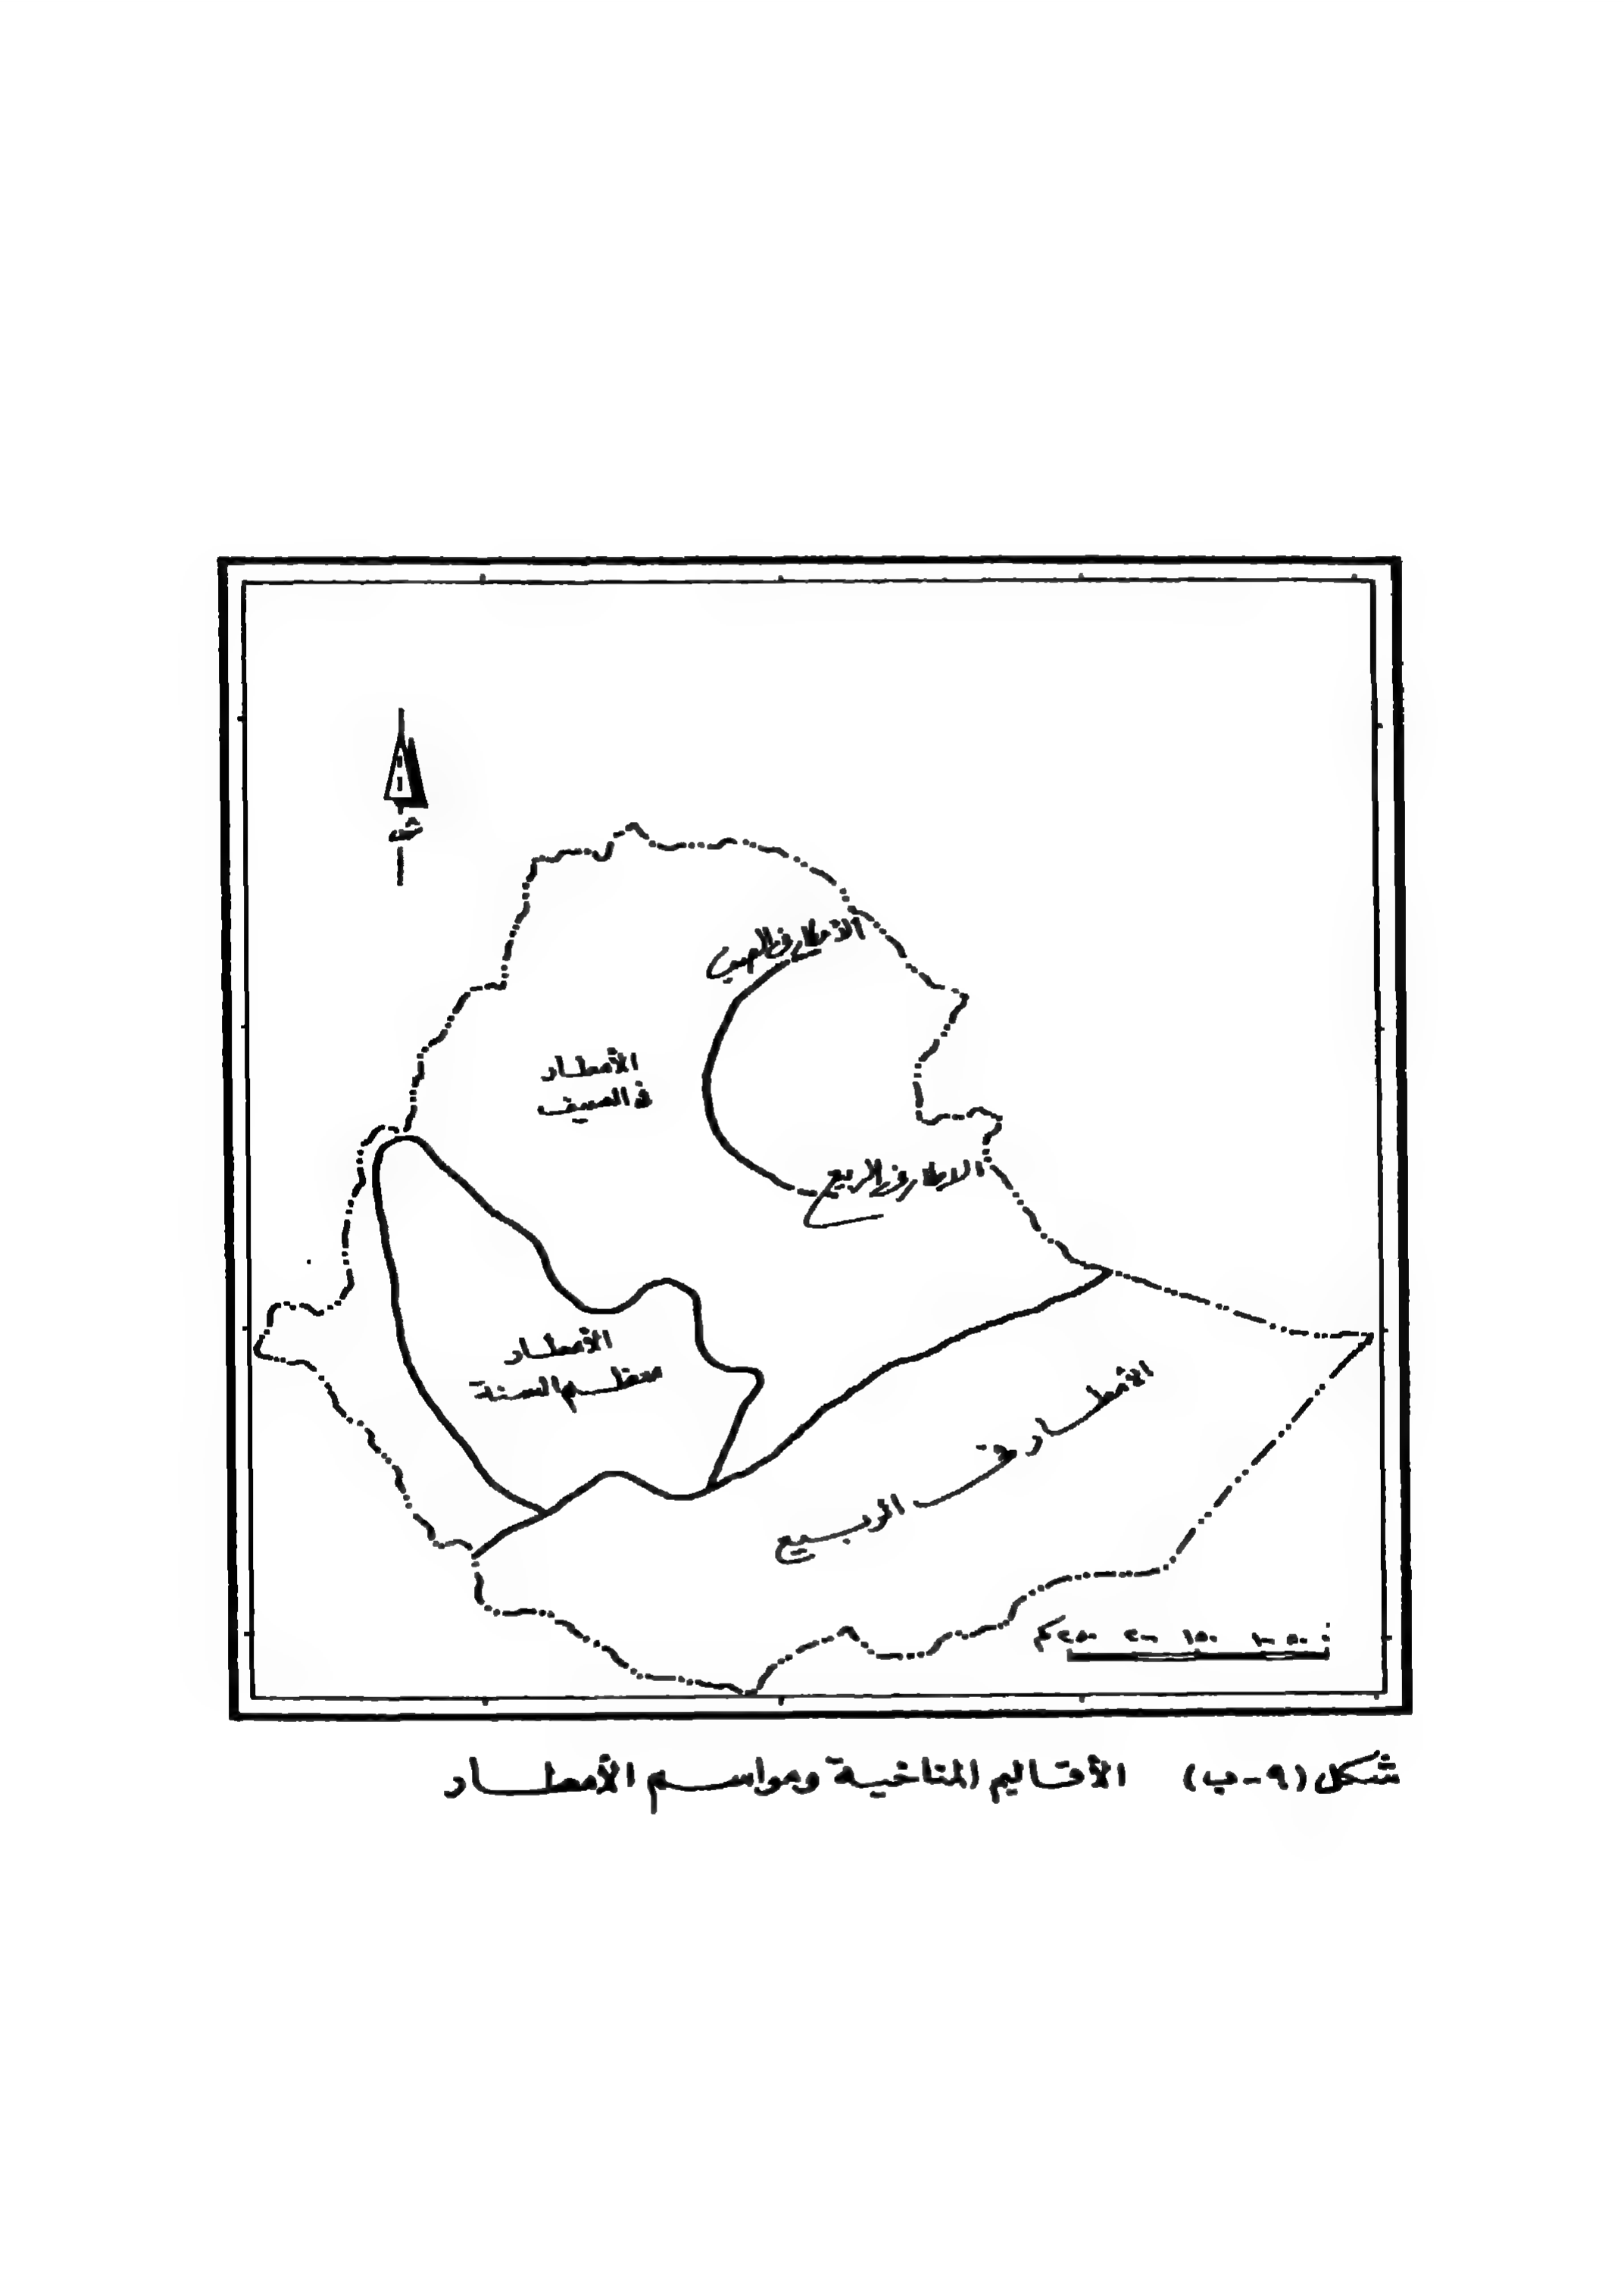 ش
الأمطار في الصيف
الأمطار
في الصيف
الامطار في الربيع
الأمطار
معظم السنة
الأمطار في الربيع
٠ ٥٠ ١٠٠ ١٥٠ ٢٠٠ ٢٥٠ كم
شكل (٩-ب) الأقاليم المناخية ومواسم الأمطار